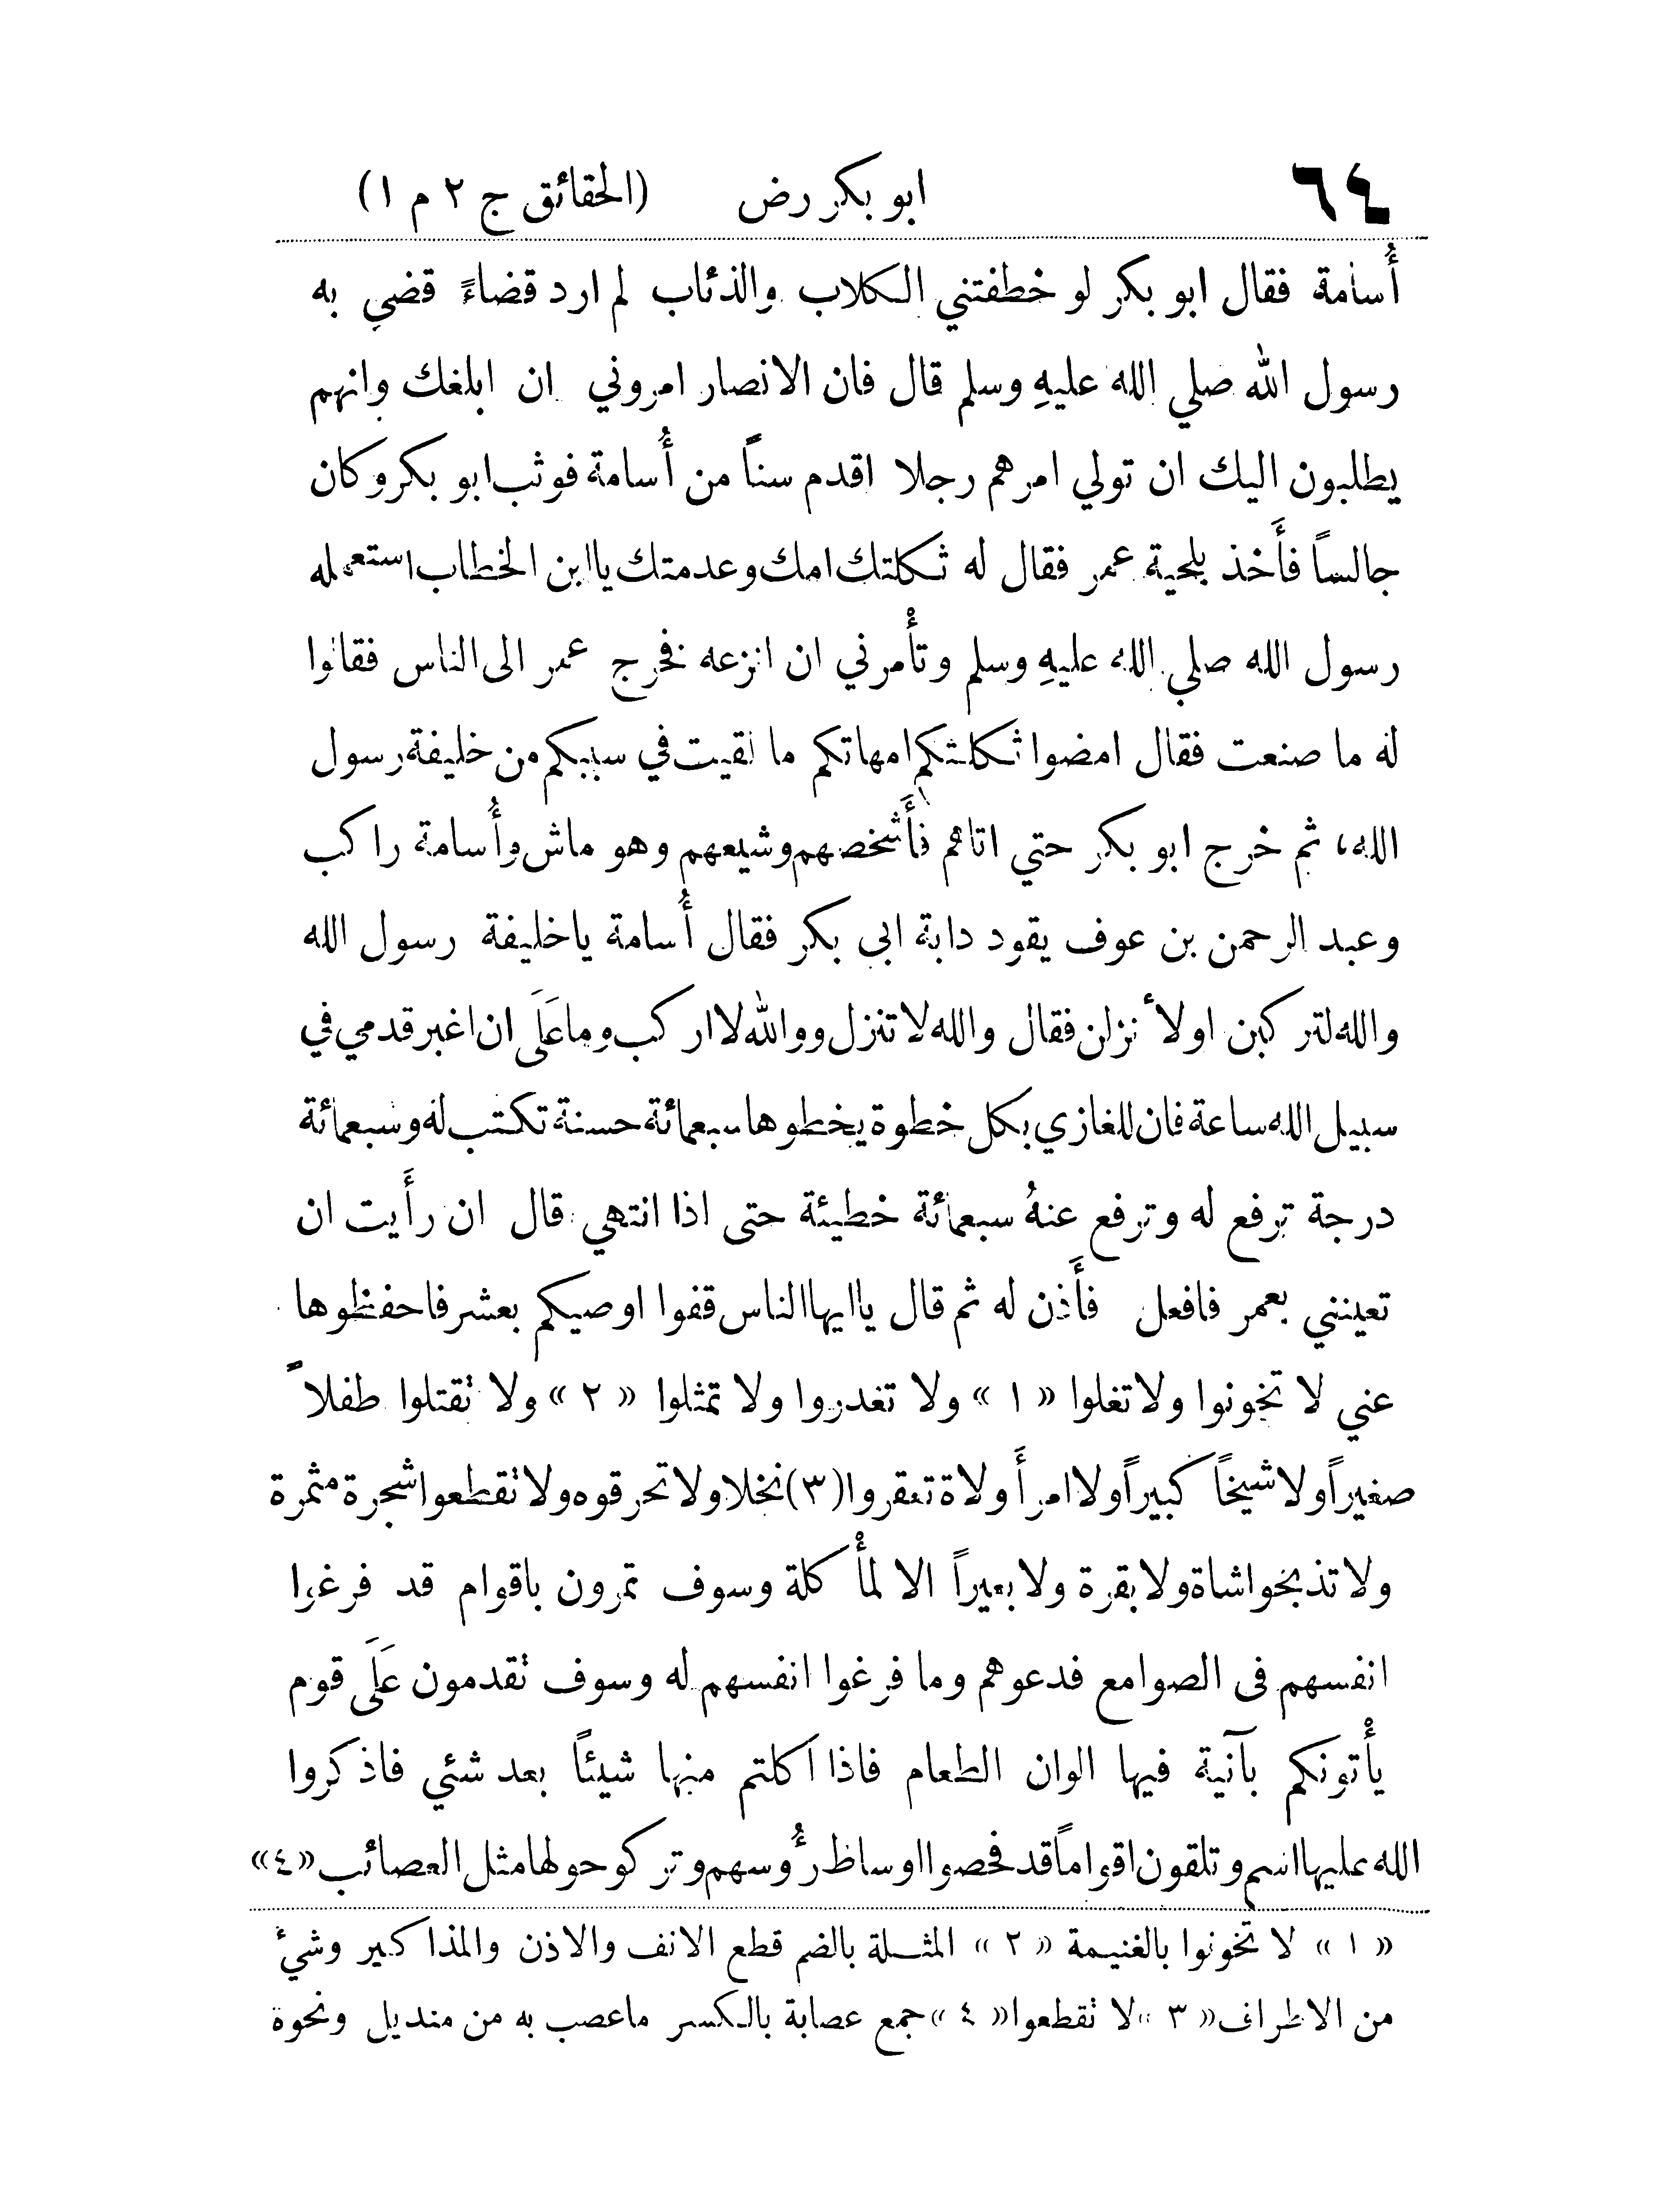 ٦٤ ابو بكر رض (الحقائق ج ٢ م ١)
أُسامة فقال ابو بكر لو خطفتني الكلاب والذئاب لم ارد قضاءً قضي به
رسول الله صلي الله عليهِ وسلم قال فان الانصار امروني ان ابلغك وانهم
يطلبون اليك ان تولي امرهم رجلا اقدم سناً من أُسامة فوثب ابو بكر وكان
جالساً فأَخذ بلحية عمر فقال له ثكلتك امك وعدمتك يا ابن الخطاب استعمله
رسول الله صلي الله عليهِ وسلم وتأْمرني ان انزعه فخرج عمر الى الناس فقالوا
له ما صنعت فقال امضوا ثكلتكم امهاتكم ما لقيت في سببكم من خليفة رسول
الله، ثم خرج ابو بكر حتي اتاهم فأَشخصهم وشيعهم وهو ماش وأُسامة راكب
وعبد الرحمن بن عوف يقود دابة ابي بكر فقال أُسامة يا خليفة رسول الله
والله لتركبن اولأ نزلن فقال والله لا تنزل ووالله لا اركب وما عَلَى ان اغبر قدمي في
سبيل الله ساعة فان للغازي بكل خطوة يخطوها سبعمائة حسنة تكتب له وسبعمائة
درجة ترفع له وترفع عنهُ سبعمائة خطيئة حتى اذا انتهي قال ان رأَيت ان
تعينني بعمر فافعل فأَذن له ثم قال يا ايها الناس قفوا اوصيكم بعشر فاحفظوها
عني لا تخونوا ولا تغلوا « ١ » ولا تغدروا ولا تمثلوا « ٢ » ولا تقتلوا طفلاً
صغيراً ولا شيخاً كبيراً ولا امرأَ ولاة تعقروا (٣) نخلا ولا تحرقوه ولا تقطعوا شجرة مثمرة
ولا تذبحوا شاة ولا بقرة ولا بعيراً الا لمأْكلة وسوف تمرون باقوام قد فرغوا
انفسهم فى الصوامع فدعوهم وما فرغوا انفسهم له وسوف تقدمون عَلَى قوم
يأْتونكم بآنية فيها الوان الطعام فاذا اكلتم منها شيئاً بعد شئي فاذكروا
الله عليها اسم وتلقون اقواماً قد فحصوا اوساظ رؤُوسهم وتركو حولها مثل العصائب « ٤ »
« ١ » لا تخونوا بالغنيمة « ٢ » المثلة بالضم قطع الانف والاذن والمذاكير وشئ
من الاطراف « ٣ » لا تقطعوا « ٤ » جمع عصابة بالكسر ماعصب به من منديل ونحوة